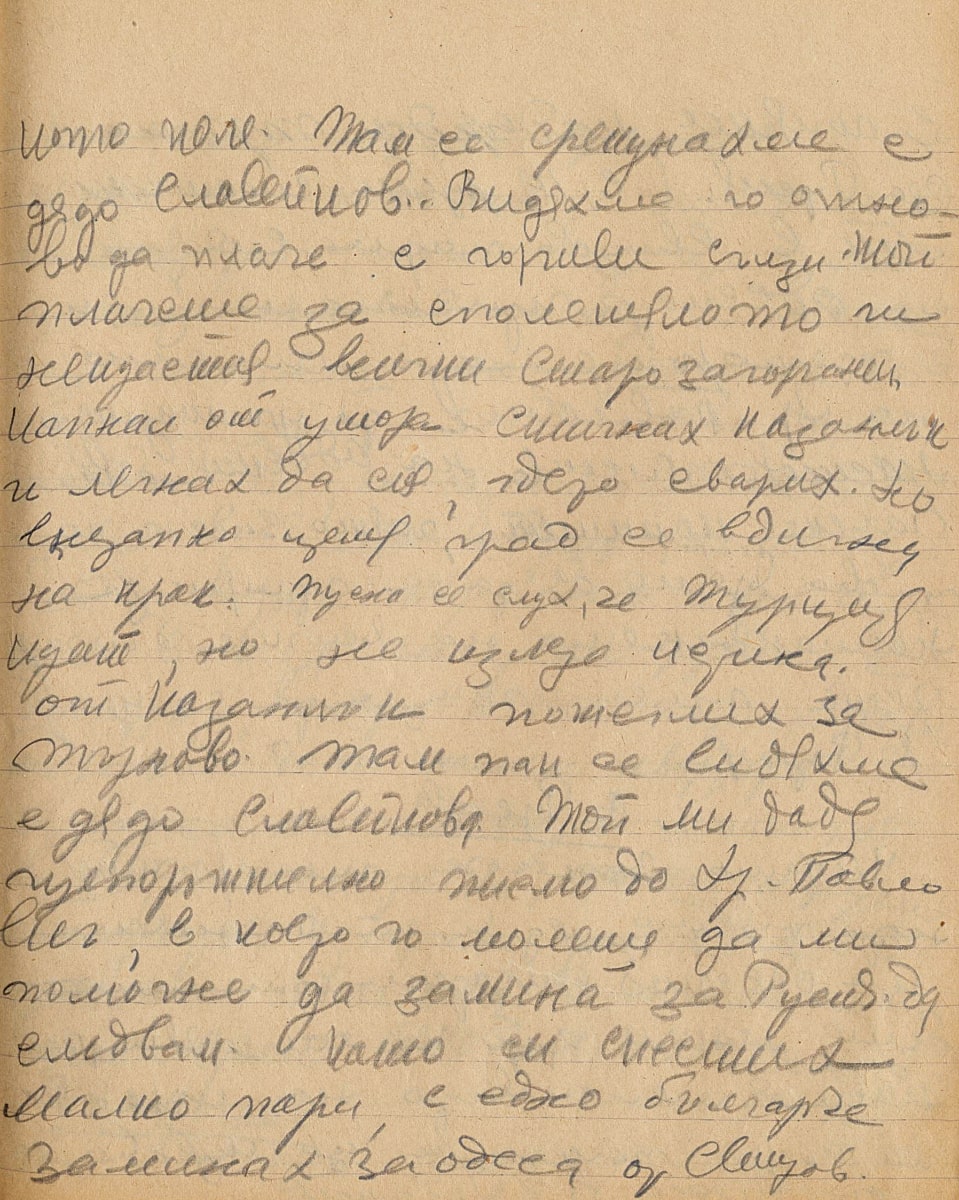 като поле. Там се срещнахме с
дядо Славейков. Видяхме го отно-
во да плаче с горчиви сълзи. Той
плачеше за сполетялото ни
нещастие всички Старозагорани,
Капнал от умора стигнах Казанлък
и легнах да спя, гдето сварих. Но
внезапно целия град се вдигна
на крак. Пусна се слух, че Турците
идат, но не излезе
от Казанлък потеглих за
Търново. Там пак се видяхме
с дядо Славейкова. Той ми даде
препоръчително писмо до Хр. Павло
вич, в което го молеше да ми
помогне да замина за Русия да
следвам. Като си спестих
малко пари, с едно българче
заминах за Одеса от Свищов.